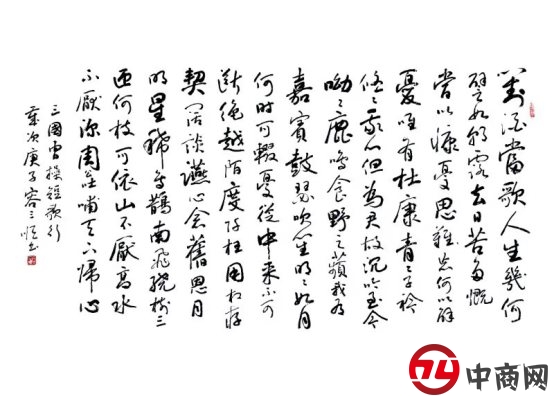 對酒當歌人生幾何
譬如朝露去日苦多慨
當以慷憂思難忘何以解
憂唯有杜康青〻子衿
悠〻我心但為君故沉吟至今
呦〻鹿鳴食野之蘋我有
嘉賓鼓瑟吹笙明〻如月
何時可輟憂從中來不可
斷絕越陌度阡枉用相存
契闊談讌心念舊恩月
明星稀烏鵲南飛繞樹三
匝何枝可依山不厭高水
不厭深周公哺天下歸心
三國曹操短歌行
歲次庚子容三恒書
中商网